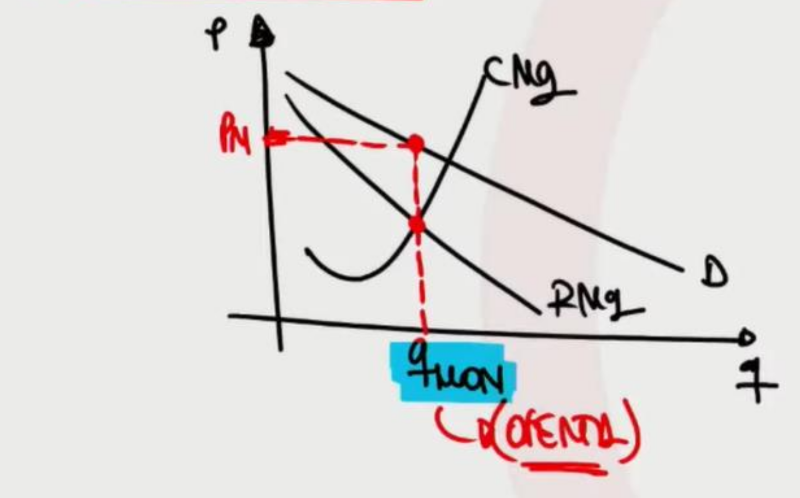 P
CMg
PM
D
RMg
q
qMON
(OFERTA)